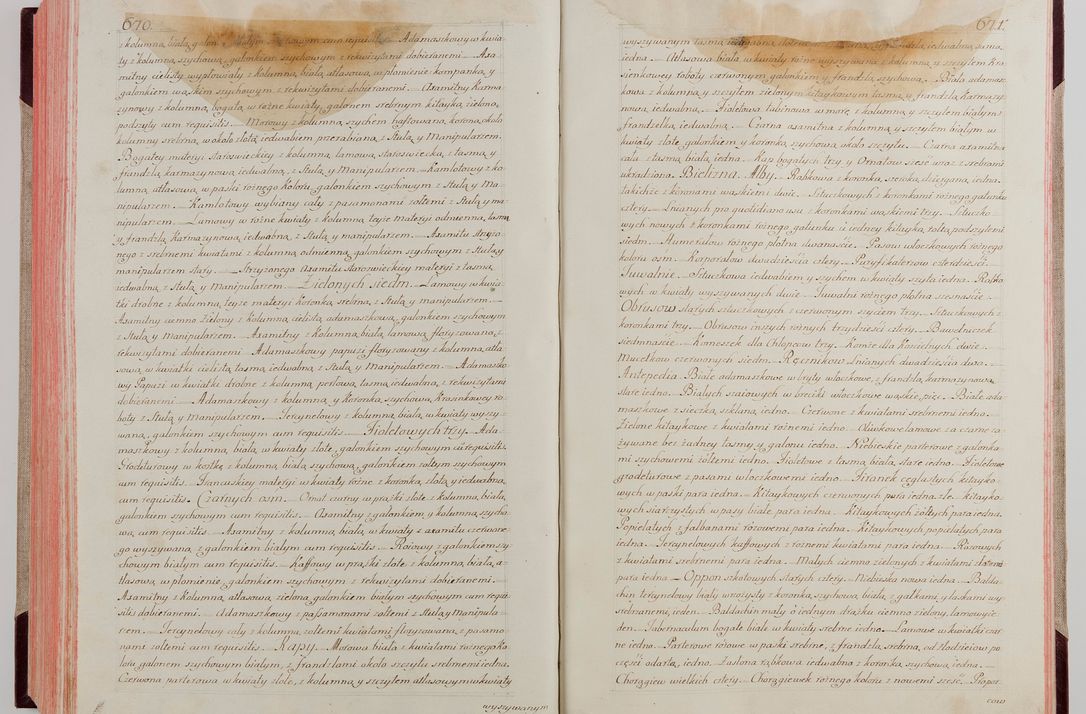 670.
z kolumną białą galon cum requisitis. Adamaszkowy w kwia-
ty z kolumną szychową, galonkiem szychowym z rekwizytami dobieranemi. Axa-
mitny cielisty wypłowiały z kolumną białą atłasową, w płomienie kampanką y
galonkiem wąskim szychowym z rekwizytami dobieranemi. Axamitny karma-
zynowy z kolumną bogatą w rożne kwiaty, galonem srebrnym kitayką zieloną,
podszyty cum requisitis. Morowy z kolumną szychem haftowaną, koroną około
kolumny srebrną, wokoło złotą iedwabiem przerabianą z Stułą y Manipularzem.
Bogatey materyi staroswieckiey z kolumną lamową staroswiecką, z tasmą y
frandzlą karmazynową iedwabną, z Stułą y Manipularzem. Kamlotowy z ko-
lumną atłasową w paski rożnego koloru, galonkiem szychowym z Stułą y Ma-
nipularzem. Kamlotowy wybiany cały z pasamonami żołtemi z Stułą y ma-
nipularzem. Lamowy w rożne kwiaty z kolumną teyże materyi odmienną, tasmą
y frandzlą karmazynową iedwabną, z Stułą y manipularzem. Axamitu strżyżo-
nego z srebrnemi kwiatami z kolumną odmienną, galonkiem szychowym z Stułą y
manipularzem stary. Strzyżonego Axamitu staroswieckiey materyi z tasmą
iedwabną, z Stułą y Manipularzem. Zielonych siedm. Lamowy w kwia-
tki drobne z kolumną teyże materyi koronką srebrną, z Stułą y manipularzem.
Axamitny ciemno zielony z kolumną cielistą adamaszkową, galonkiem szychowym
z Stułą y Manipularzem. Axamitny z kolumną białą, lamową floryzowaną, z
rekwizytami dobieranemi. Adamaszkowy papuzi floryzowany z kolumną atła-
sową w kwiatki cielistą tasmą iedwabną, z Stułą y Manipularzem. Adamaszko-
wy Papuzi w kwiatki drobne z kolumną perłową, tasmą iedwabną, z rekwizytami
dobieranemi. Adamaszkowy z kolumną y koronką szychową, Krasinkowey ro-
boty z Stułą y Manipularzem. Tercynelowy z kolumną białą w kwiaty wyszy-
waną, galonkiem szychowym cum requisitis. Fioletowych trzy. Ada-
maszkowy z kolumną białą, w kwiaty złote, galonkiem szychowym cu requisitis.
Grodeturowy w kostkę z kolumną białą szychową, galonkiem żołtym szychowym
cum requisitis. Francuskiey materyi w kwiaty rożne z koronką złotą y iedwabną
cum requisitis. Czarnych osm. Ornat czarny w prążki złote z kolumną białą,
galonkiem szychowym cum requisitis. Axamitny z galonkiem y kolumną szycho-
wą cum requisitis. Axamitny z kolumną białą w kwiaty z axamitu czerwone-
go wyszywaną, z galonkiem białym cum requisitis. Rajowy z galonkiem szy-
chowym białym cum requisitis. Kaffowy w prążki złote z kolumną białą, a-
tłasową w płomienie, galonkiem szychowym z rekwizytami dobieranemi.
Axamitny z Kolumną atłasową zieloną, galonkiem białym szychowym cum requi-
sitis dobieranemi. Adamaszkowy z passamonami żołtemi z Stułą y Manipula-
rzem. Tercynelowy cały z kolumną żołtemi kwiatami floryzowaną, z pasamo-
nami żołtemi cum requisitis. Kapy. Morowa biała z kwiatami rożnego ko-
loru galonem szychowym białym, z frandzlami około szczytu srebrnemi iedna.
Czerwona parterowa w kwiaty złote, z kolumną y szczytem atłasowym w kwiaty
wyszywanym
671.
wyszywanym tasmą iedwabną iedwabną sama
iedna. Atłasowa biała w kwiaty rożne wyszywana z kolumną y szczytem Kra-
sienkowey roboty czerwonym galonkiem y frandzlą szychową. Biała adamasz-
kowa z kolumną y szczytem zielonym kitaykowym tasmą y frandzlą karmazy-
nową iedwabną. Fioletowa tubinowa w morę z kolumną y szczytem białym
frandzelką iedwabną. Czarna axamitna z kolumną y szczytem białym w
kwiaty złote galonkiem y koronką szychową około szczytu. Czarna axamitna
cała z tasmą białą iedna. Kap bogatych trzy y Ornatow szesc wraz z srebrami
ukradziono. Bielizna. Alby. Rąbkowa z koronką szeroką dzierganą iedna.
takichże z koronami wąskiemi dwie. Sztuczkowych z koronkami rożnego gatunku
cztery. Lnianych pro quotidiano usu z koronkami wąskiemi trzy. Sztuczko-
wych nowych z koronkami rożnego gatunku u iedney kitayką żołtą podszytemi
siedm. Humerałow rożnego płotna dwanascie. Pasow włoczkowych rożnego
koloru osm. Korporałow dwadziescia cztery. Puryfikaterzow czterdziesci.
Tuwalnie. Sztuczkowa iedwabiem y szychem w kwiaty szyta iedna. Rąbko-
wych w kwiaty wyszywanych dwie. Tuwalni rożnego płotna szesnascie.
Obrusow starych sztuczkowych z czerwonym szyciem trzy. Sztuczkowych z
koronkami trzy. Obrusow inszych rożnych trzydziesci cztery. Buwelniczek
siedmnascie. Komeszek dla Chłopcow trzy. Komże dla Kscielnych dwie.
Mucetkow czerwonych siedm. Ręcznikow Lnianych dwadziescia dwa.
Antepedia. Białe adamaszkowe w bryty włoczkowe, z frandzlą karmazynową
stare iedno. Białych rasiowych w breciki włoczkowe wąskie, pięc. Białe ada-
maszkowe z sieczką szklaną iedno. Czerwone z kwiatami srebrnemi iedno.
Zielone kitaykowe z kwiatami rożnemi iedno. Oliwkowe lamowe za czarne za-
żywane bez żadney tasmy y galonu iedno. Niebieskie parterowe z galonka-
mi szychowemi żołtemi iedno. Fioletowe z tasmą białą stare iedno. Fioletowe
grodeturowe z pasami włoczkowemi iedno. Firanek ceglastych kitayko-
wych w paski para iedna. Kitaykowych czerwonych para iedna złe. Kitayko-
wych siarzystych w pasy białe para iedna. Kitaykowych żołtych para iedna.
Popielatych z falbanami rożowemi para iedna. Kitaykowych popielatych para
iedna. Tercynelowych kaffowych z rożnemi kwiatami para iedna. Ryżowych
z kwiatami srebrnemi para iedna. Małych ciemno zielonych z kwiatami złotemi
para iedna. Oppon szkotowych starych cztery. Niebieska nowa iedna. Balda-
chin tercynelowy biały wrożysty z koronką szychową białą, z gałkami y laskami wy-
srebrzanemi, ieden. Baldachin mały o iednym drążku ciemno zielony, lamowy ie-
den. Tabernaculum bogate białe w kwiaty srebrne iedno. Lamowe w kwiatki czar-
ne iedno. Parterowe rożowe w paski srebrne, z frandzlą srebrną, od złodzieiow po
częsci odartą, iedno. Zasłona rąbkowa iedwabna z koronką szychową iedna.
Chorągiew wielkich cztery. Chorągiewek rożnego koloru z nowemi szesc. Propor-
cow